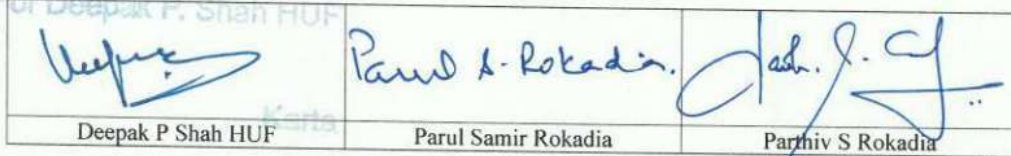 For Deepak P. Shah HUF
Parul S. Rokadia.
Karta
Deepak P Shah HUF Parul Samir Rokadia Parthiv S Rokadia